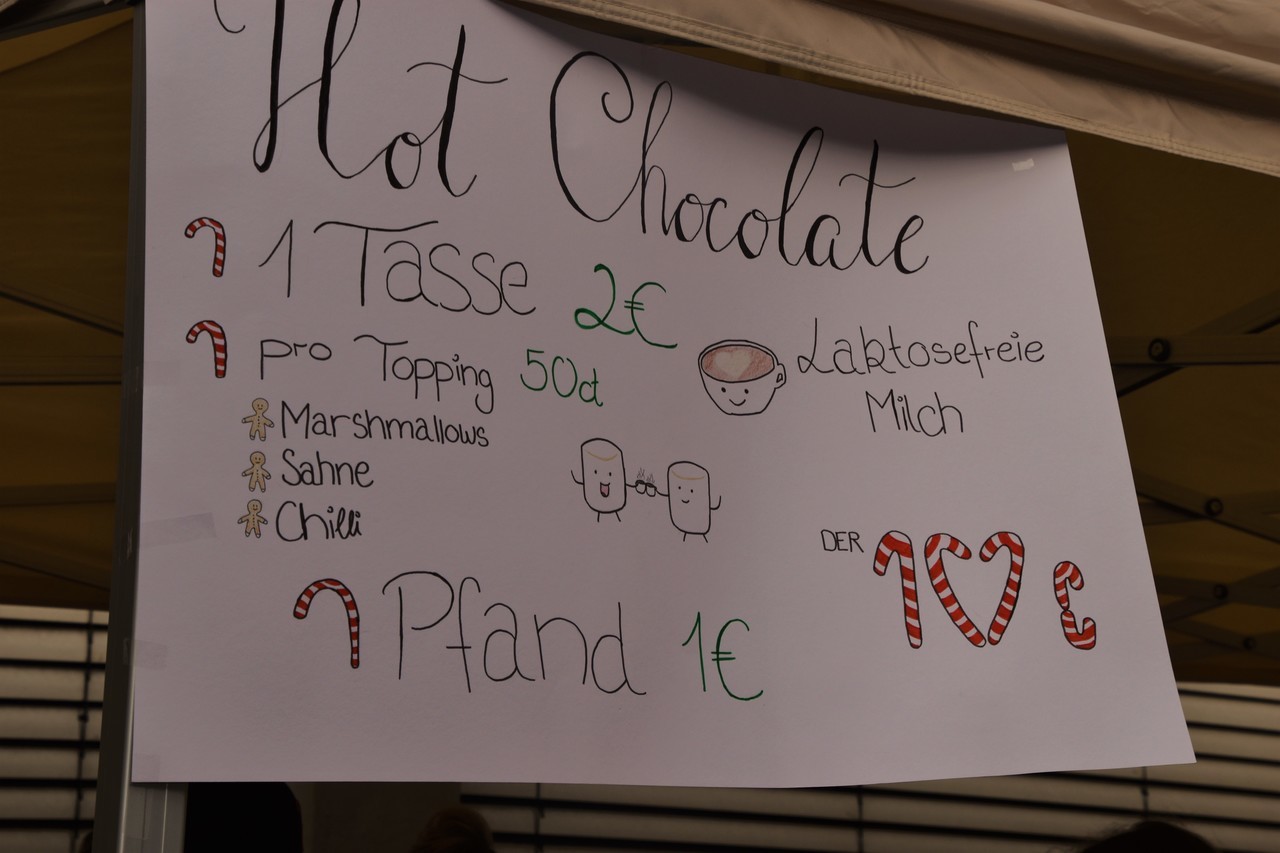 Hot Chocolate
1 Tasse 2€
pro Topping 50ct
Laktosefreie
Milch
Marshmallows
Sahne
Chilli
DER
Pfand 1€